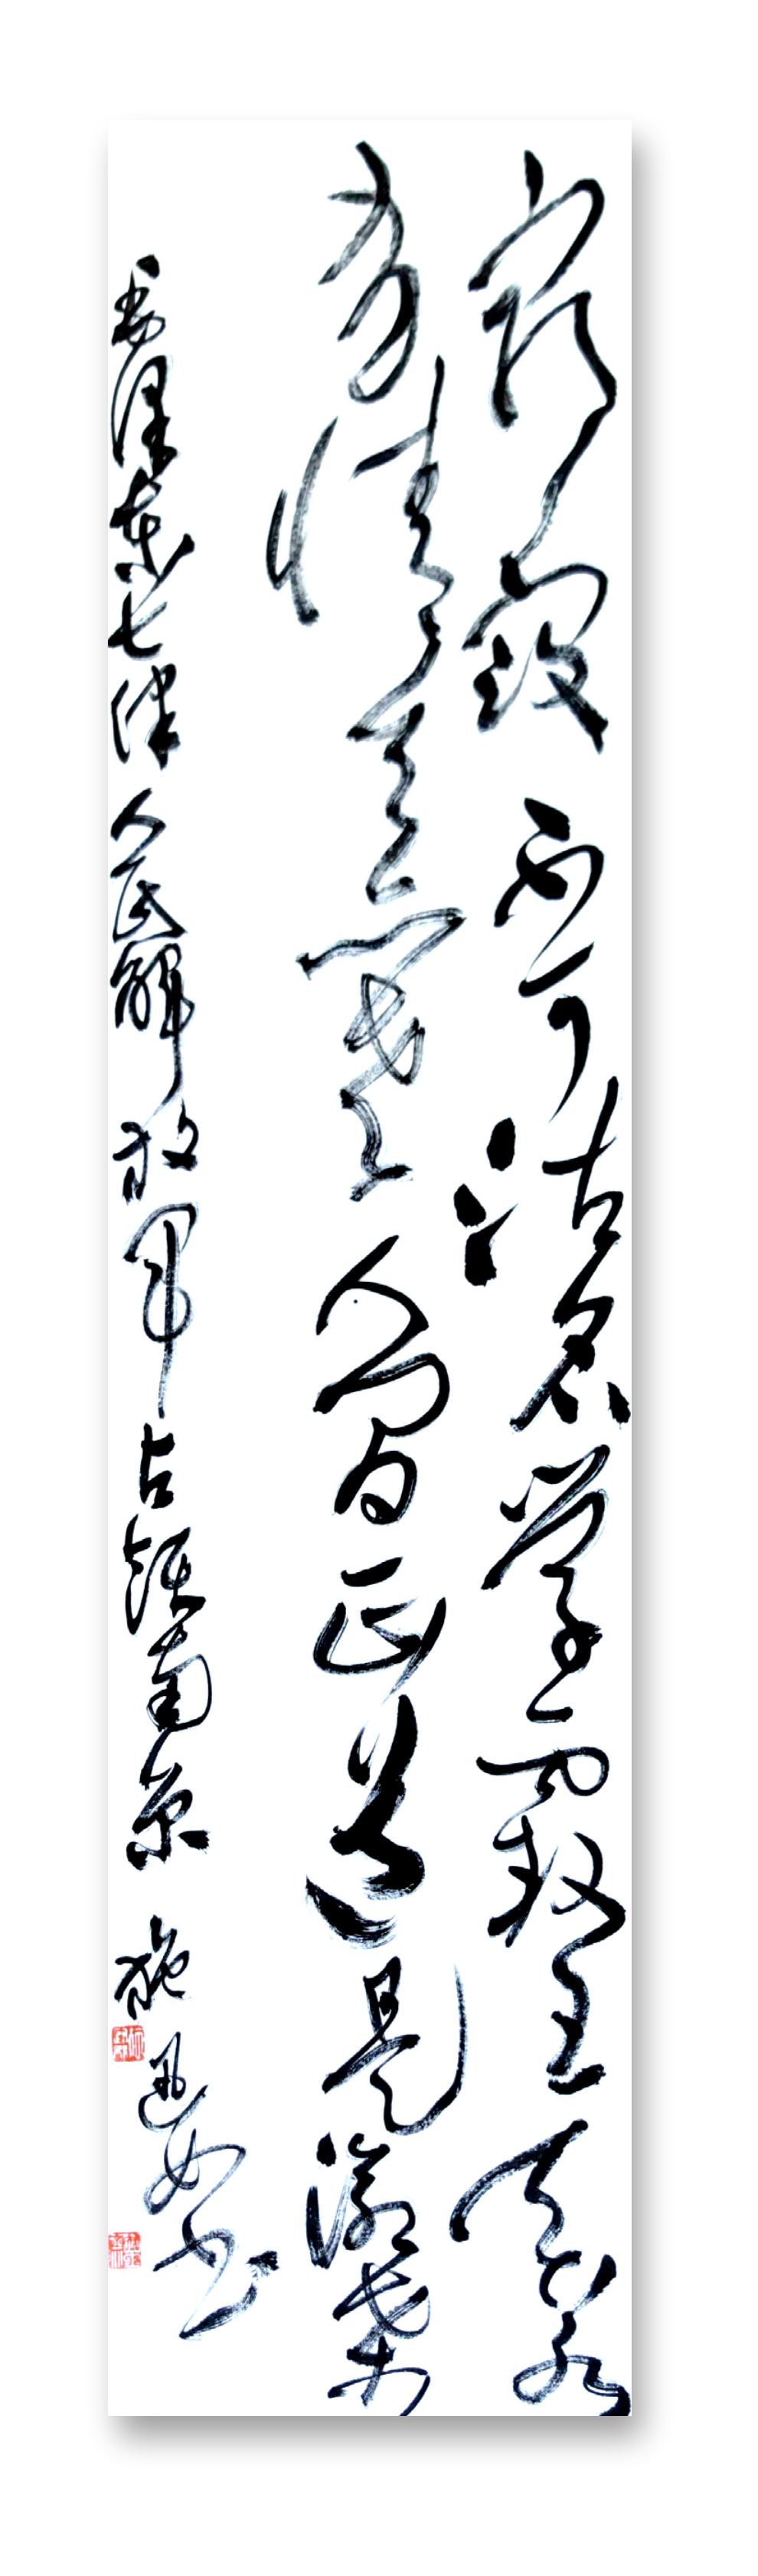 穷寇不可沽名学霸王天若
有情天亦老人间正道是沧桑
毛泽东七律人民解放军占领南京 施书